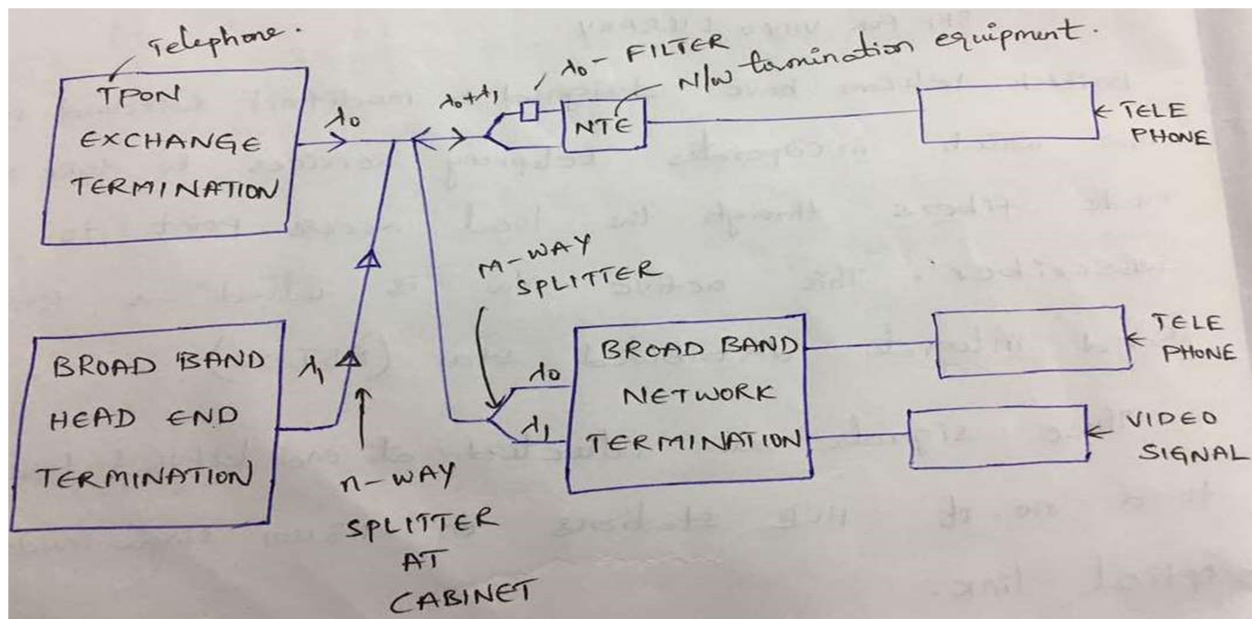 Telephone.
TPON
EXCHANGE
TERMINATION
λ0
λ0+λ1
λ0 - FILTER
N/W termination equipment.
NTE
TELE
PHONE
M-WAY
SPLITTER
BROAD BAND
HEAD END
TERMINATION
λ1
n-WAY
SPLITTER
AT
CABINET
λ0
λ1
BROAD BAND
NETWORK
TERMINATION
TELE
PHONE
VIDEO
SIGNAL